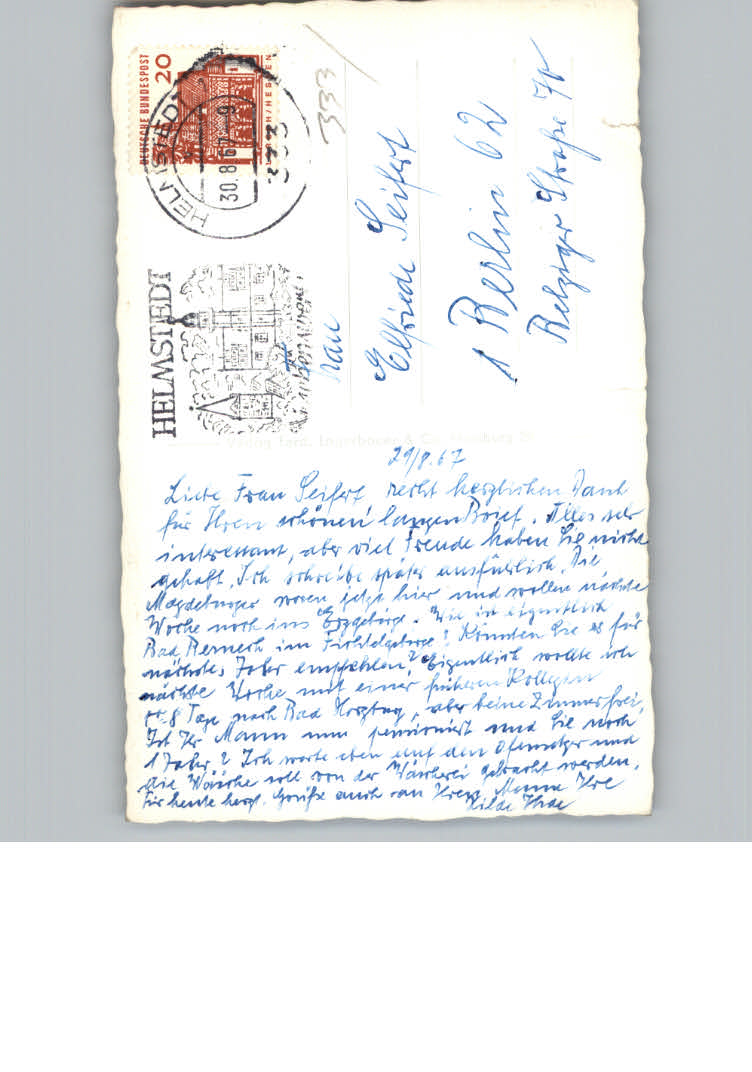 DEUTSCHE BUNDESPOST
20
LORSCH/HESSEN
HELMSTEDT
30.8.67-9
333
HELMSTEDT
333
Frau
Elfriede Seifert
1 Berlin 62
Belziger Straße 70
29/8.67
Liebe Frau Seifert recht herzlichen Dank
für Ihren schönen langen Brief. Alles sehr
interessant, aber viel Freude haben Sie nicht
gehabt. Ich schreibe später ausführlich. Die
Magdeburger waren jetzt hier und wollen nächste
Woche noch ins Erzgebirge. Wie ist eigentlich
Bad Berneck im Fichtelgebirge? Könnten Sie es für
nächstes Jahr empfehlen? Eigentlich wollte ich
nächste Woche mit einer früheren Kollegin
8 Tage nach Bad Harzburg, aber keine Zimmer frei.
Ist Ihr Mann nun pensioniert und Sie noch
1 Jahr? Ich warte eben auf den Ofensetzer und
die Wäsche soll von der Wäscherei gebracht werden.
Für heute herzl. Grüße auch an Ihren Mann Ihre
Hilde